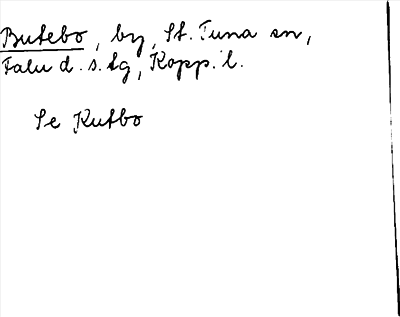 Butebo, by, St. Tuna sn,
Falu d. s. tg, Kopp. l.
Se Kutbo